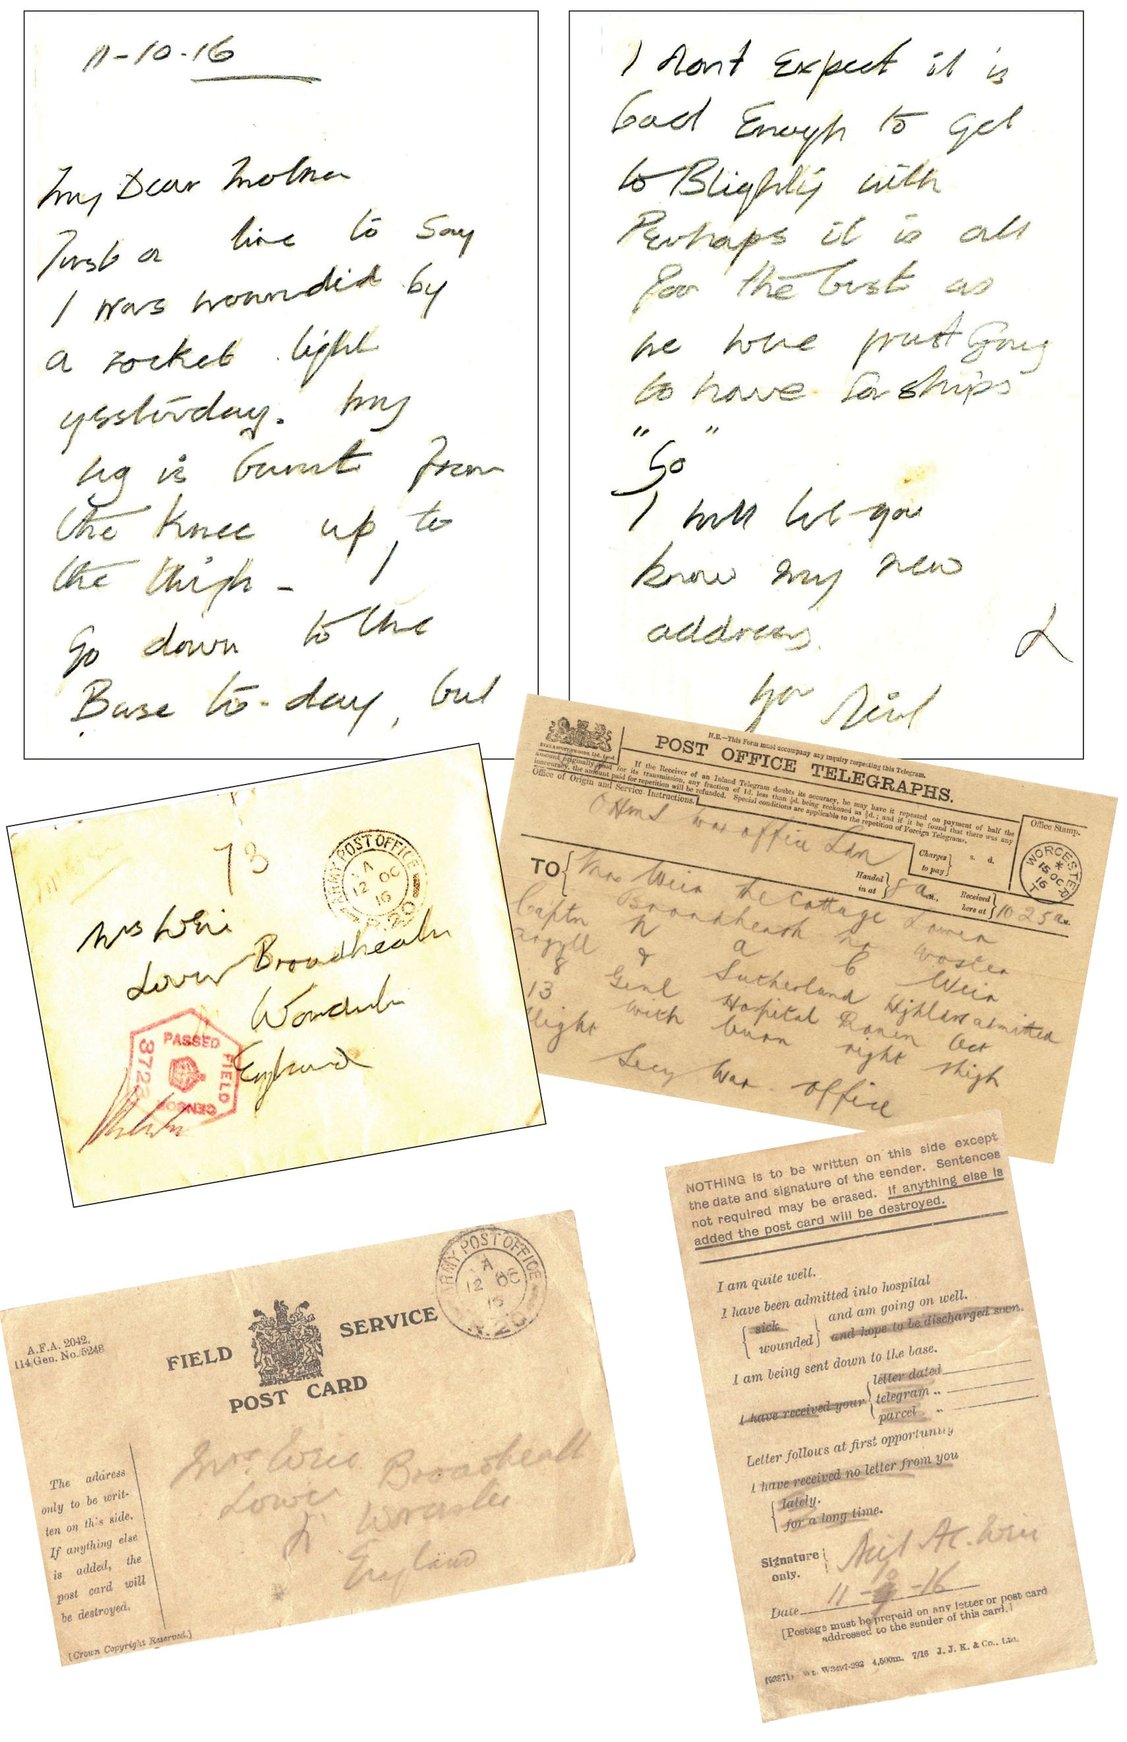 11-10-16
My Dear Mother
Just a line to say
I was wounded by
a rocket light
yesterday. my
leg is burnt from
the knee up to
the thigh - I
Go down to the
Base to-day, but
I dont Expect it is
bad Enough to get
to Blighty with
Perhaps it is all
for the best as
we were just Going
to have
"So"
I will let you
know my new
address.
Your
Neil
73
ARMY POST OFFICE
A
12 OC
16
Mrs Weir
Lower Broadheath
England
PASSED FIELD CENSOR
3728
N.B.—This Form must accompany any inquiry respecting this Telegram.
POST OFFICE TELEGRAPHS.
If the Receiver of an Inland Telegram doubts its accuracy, he may have it repeated on payment of half the
amount originally paid for its transmission, any fraction of 1d. less than ½d. being reckoned as ½d.; and if it be found that there was any
inaccuracy, the amount paid for repetition will be refunded. Special conditions are applicable to the repetition of Foreign Telegrams.
Office of Origin and Service Instructions.
Office Stamp.
OHMS war office Ldn
Charges to pay
s. d.
WORCESTER
15 OC
16
Handed in at
8 am.
Received here at
10.25am
TO
Mrs Weir the Cottage Lower
Broadheath nr worster
Captn N a C Weir
argyll & Sutherland Highlars admitted
8 Genl Hospital Rouen Oct
13 with burn right thigh
slight
Secy War office
A.F.A. 2042.
114/Gen. No./5248
FIELD SERVICE
POST CARD
ARMY POST OFFICE
A
12 OC
16
The address
only to be writ-
ten on this side.
If anything else
is added, the
post card will
be destroyed.
[Crown Copyright Reserved.]
Mrs. Weir
Lower Broadheath
Nr Worcester
England
NOTHING is to be written on this side except
the date and signature of the sender. Sentences
not required may be erased. If anything else is
added the post card will be destroyed.
I am quite well.
I have been admitted into hospital
sick and am going on well.
wounded and hope to be discharged soon.
I am being sent down to the base.
I have received your
letter dated
telegram „
parcel „
Letter follows at first opportunity
I have received no letter from you
lately.
for a long time.
Signature only.
Neil AC. Weir
Date 11 - -16
[Postage must be prepaid on any letter or post card
addressed to the sender of this card.]
(93871) Wt. W3497-293 4,500m. 7/16 J. J. K. & Co., Ltd.